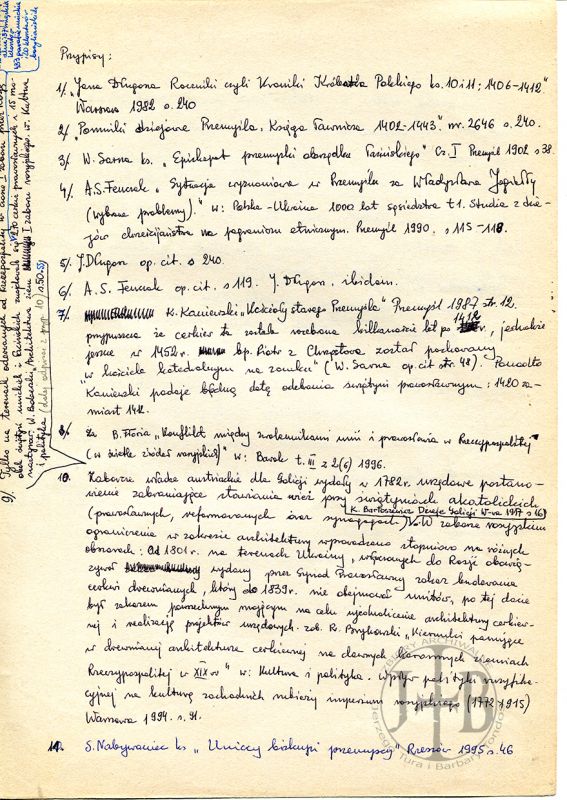 Przypisy:
1/. "Jana Długosza Roczniki czyli Kroniki Królestwa Polskiego ks. 10 i 11; 1406-1412"
Warszawa 1982 s. 240
2/. "Pomniki dziejowe Przemyśla. Księga Ławnicza 1402-1443". nr. 2646 s. 240.
3/. W. Sarna ks. "Episkopat przemyski obrządku łacińskiego" Cz. I Przemyśl 1902 s 38.
4/. A.S. Fenczak "Sytuacja wyznaniowa w Przemyślu za Władysława Jagiełły
(wybrane problemy)." w: Polska-Ukraina 1000 lat sąsiedztwa t 1. Studia z dzie-
jów chrześcijaństwa na pograniczu etnicznym. Przemyśl 1990. s 115-118.
5/. J. Długosz op. cit. s 240.
6/. A. S. Fenczak op. cit. s 119. J. Długosz. ibidem.
7/. K. Kaniewski "Kościoły starego Przemyśla" Przemyśl 1987 str. 12.
przypuszcza że cerkiew ta została rozebrana kilkanaście lat po 1412 r., jednakże
jeszcze w 1452 r. bp. Piotr z Chrząstowa został pochowany
"w kościele katedralnym na zamku" (W. Sarna op. cit str. 48). Ponadto
Kaniewski podaje błędną datę odebrania świątyni prawosławnym: 1420 za-
miast 1412.
8/. Za B. Floria "Konflikt między zwolennikami unii i prawosławia w Rzeczypospolitej
(w świetle źródeł rosyjskich)" w: Barok t. III z 2(6) 1996.
10. Zaborcze władze austriackie dla Galicji wydały w 1782r. urzędowe postano-
wienie zabraniające stawiania wież przy świątyniach akatolickich
K. Bartoszewicz Dzieje Galicji W-wa 1917 s 16
(prawosławnych, reformowanych oraz synagogach). W zaborze rosyjskim
ograniczenia w zakresie architektury wprowadzano stopniowo na różnych
obszarach: Od 1801r. na terenach Ukrainy, włączonych do Rosji obowią-
zywał wydany przez Synod Prawosławny zakaz budowania
cerkwi drewnianych, który do 1839r. nie obejmował unitów, po tej dacie
był zakazem powszechnym mającym na celu ujednolicenie architektury cerkiew-
nej i realizację projektów urzędowych. zob. R. Brykowski "Kierunki panujące
w drewnianej architekturze cerkiewnej na dawnych koronnych ziemiach
Rzeczypospolitej w XIX w" w: Kultura i polityka. Wpływ polityki rusyfika-
cyjnej na kulturę zachodnich rubieży imperium rosyjskiego (1772-1915)
Warszawa 1994. s. 91.
11. S. Nabywaniec ks "Uniccy biskupi przemyscy" Rzeszów 1995 s. 46
9/. Tylko na terenach oderwanych od Rzeczpospolitej w czasie I zaboru przez Rosję
cerkwie prawosławnych i 15 mo-
nastyrów. W. Boberski, Architektura ziem I zaboru rosyjskiego w: Kultura
i polityka 10/ s 50.
J B